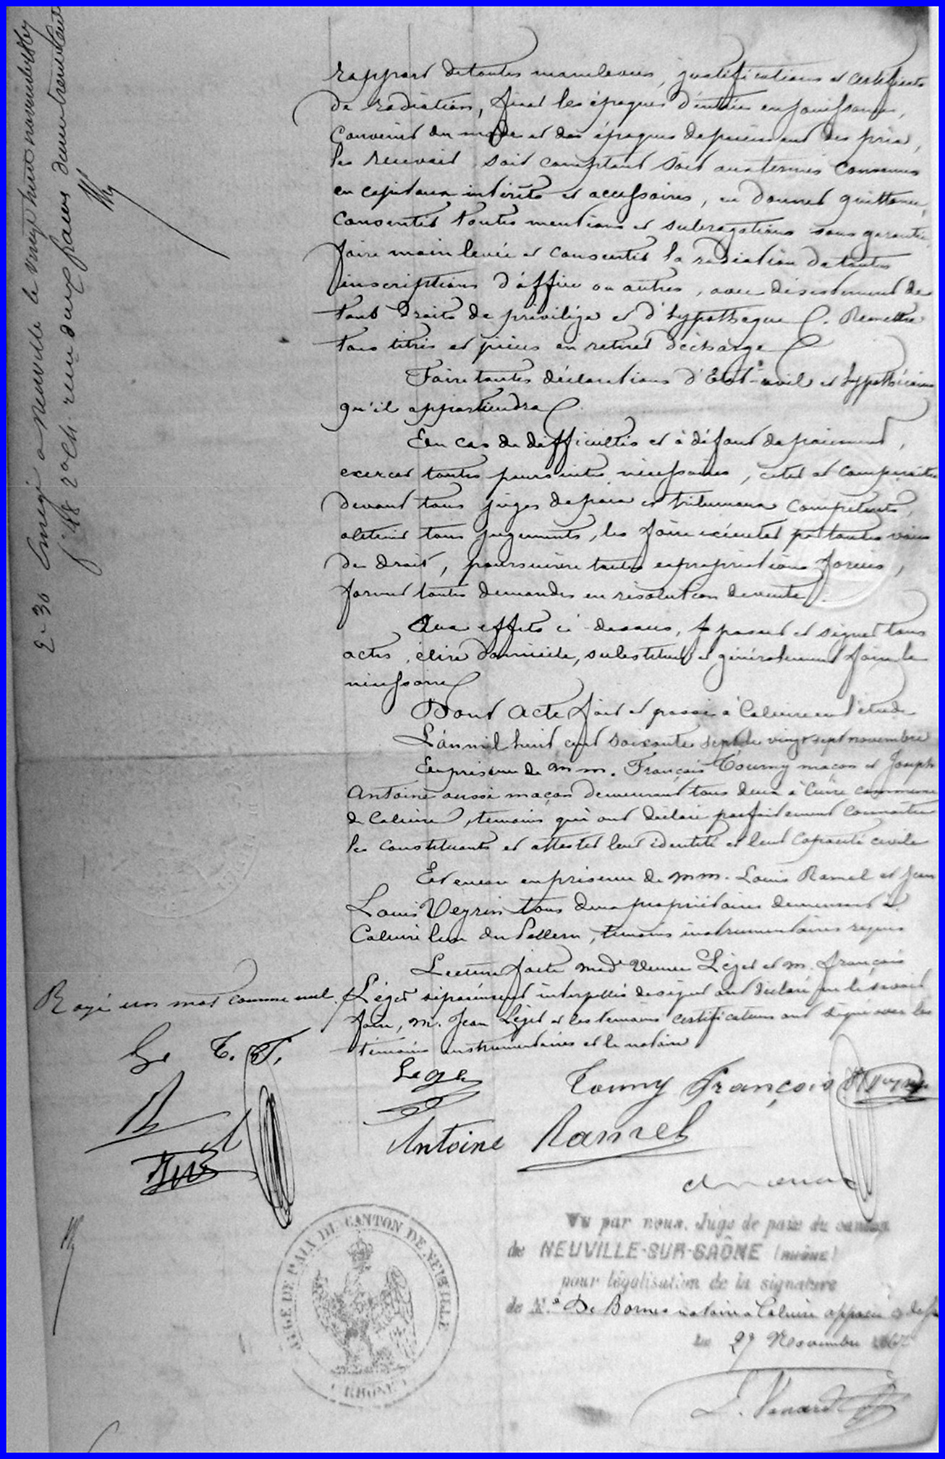 rapport de toutes mainlevées, justifications et certificats
de radiation, fixer les époques d'entrée en jouissance,
Convenir du mode et des époques de paiement des prix,
les recevoir soit comptant soit aux termes convenus
en capitaux intérêts et accessoires, en donner quittance,
consentir toutes mentions et subrogations sans garantie
faire main levée et consentir la radiation de toutes
inscriptions d'office ou autres, avec desistement de
tous Droits de privilège et d'hypothèque. Remettre
tous titres et pièces en retirer décharge
Faire toutes déclarations d'Etat-civil et hypothécaires
qu'il appartiendra
En cas de difficultés et à défaut de paiement,
exercer toutes poursuites nécessaires, citer et comparaitre
devant tous juges de paix et tribunaux compétents,
obtenir tous jugements, les faire exécuter par toutes voies
de droit, poursuivre toutes expropriations forcées,
former toutes demandes en résolution de vente.
Aux effets ci dessus, passer et signer tous
actes, élire domicile, substituer et généralement faire le
nécessaire
Dont Acte fait et passé à Caluire en l'étude
L'an mil huit cent soixante sept le vingt sept novembre
En présence de M.M. François Tourny maçon et Joseph
Antoine aussi maçon demeurant tous deux à Cuire commune
de Caluire, témoins qui ont déclaré parfaitement connaitre
les constituants et attester leur identité et leur capacité civile
Et encore en présence de M.M. Louis Ramel et Jean
Louis Veyrin tous deux propriétaires demeurant à
Caluire lieu du, témoins instrumentaires requis
Lecture faite Mad. Veuve Léger et M. françois
Léger séparément interpellés de signer ont déclaré ne le savoir
faire, M. Jean Léger et les témoins certificateurs ont signé avec les
témoins instrumentaires et le notaire
Rayé un mot comme nul
L. T. F.
Lege
Tourny François
Antoine Ramel
Vu par nous, Juge de paix du canton
de NEUVILLE-SUR-SAÔNE (RHÔNE)
pour légalisation de la signature
de Me De Bornes notaire à Caluire apposée
Le 29 Novembre 1867
JUGE DE PAIX DU CANTON DE NEUVILLE
(RHÔNE)
2.30 Enregé à Neuville le vingt huit novembre 1867
fo 48 Vo C4 reçu deux francs décime trente centimes